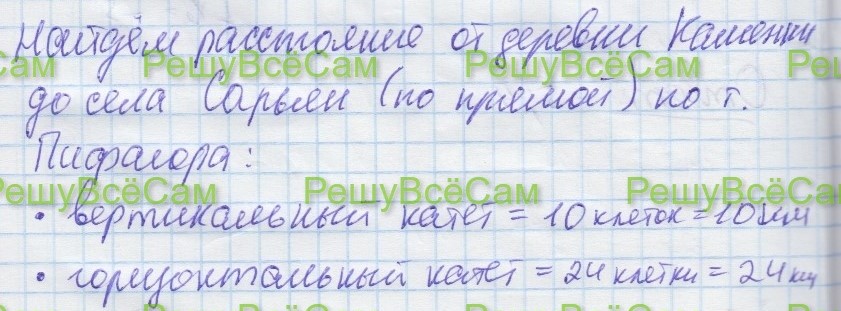 Найдём расстояние от деревни Каменки
Сам РешуВсёСам РешуВсёСам Ре
до села Сарьян (по прямой) по т.
Пифагора:
РешуВсёСам РешуВсёСам РешуВсёСам
• вертикальный катет = 10 клеток = 10 км
• горизонтальный катет = 24 клетки = 24 км